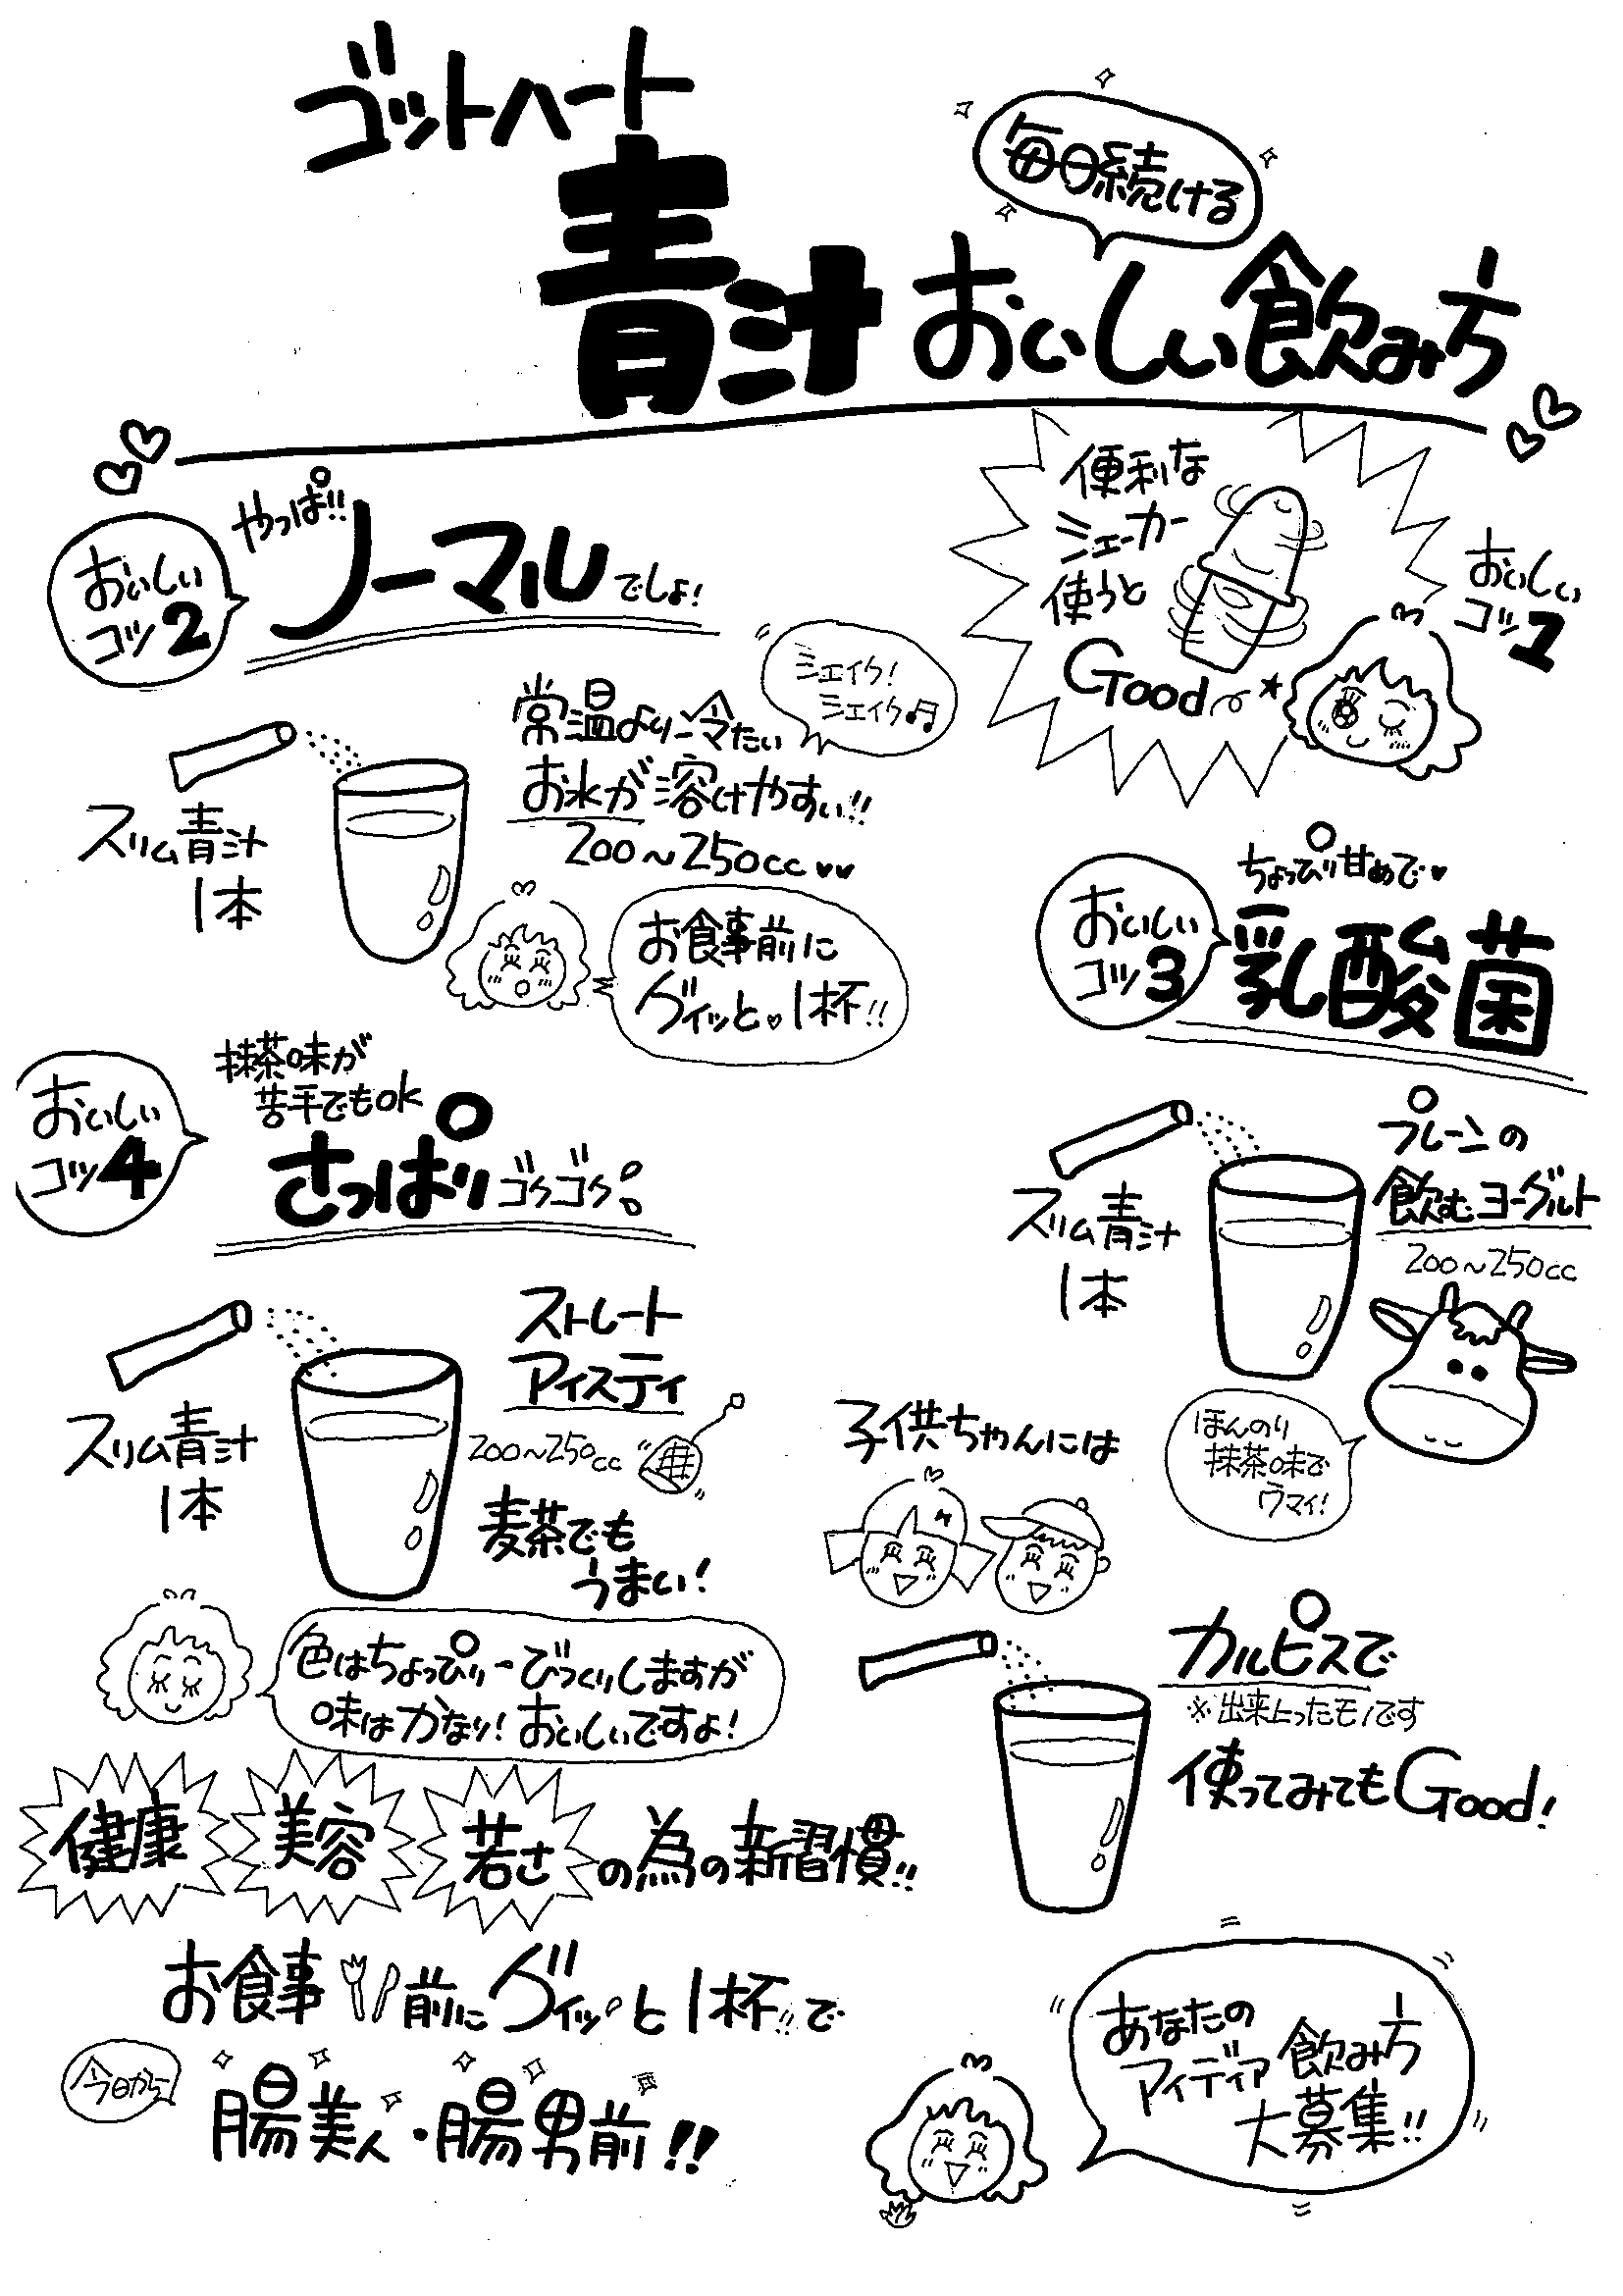 ゴットハート
毎日続ける
青汁おいしい飲み方
便利な
シェーカー
使うと
Good
おいしい
コツ1
おいしい
コツ2
やっぱ!!
ノーマルでしょ!
シェイク!
シェイク♪
常温より冷たい
お水が溶けやすい!!
200〜250cc♥♥
スリム青汁
1本
お食事前に
グイッと♡1杯!!
おいしい
コツ3
ちょっぴり甘めで♥
乳酸菌
スリム青汁
1本
プレーンの
飲むヨーグルト
200〜250cc
ほんのり
抹茶味で
ウマイ!
おいしい
コツ4
抹茶味が
苦手でもok
さっぱりゴクゴク
スリム青汁
1本
ストレート
アイスティ
200〜250cc
麦茶でも
うまい!
色はちょっぴりーびっくりしますが
味はかなり!おいしいですよ!
子供ちゃんには
カルピスで
※出来上ったモノです
使ってみてもGood!
健康 美容 若さの為の新習慣!!
お食事前にグイッと1杯!!で
今日から
腸美人・腸男前!!
あなたの
アイデア飲み方
大募集!!